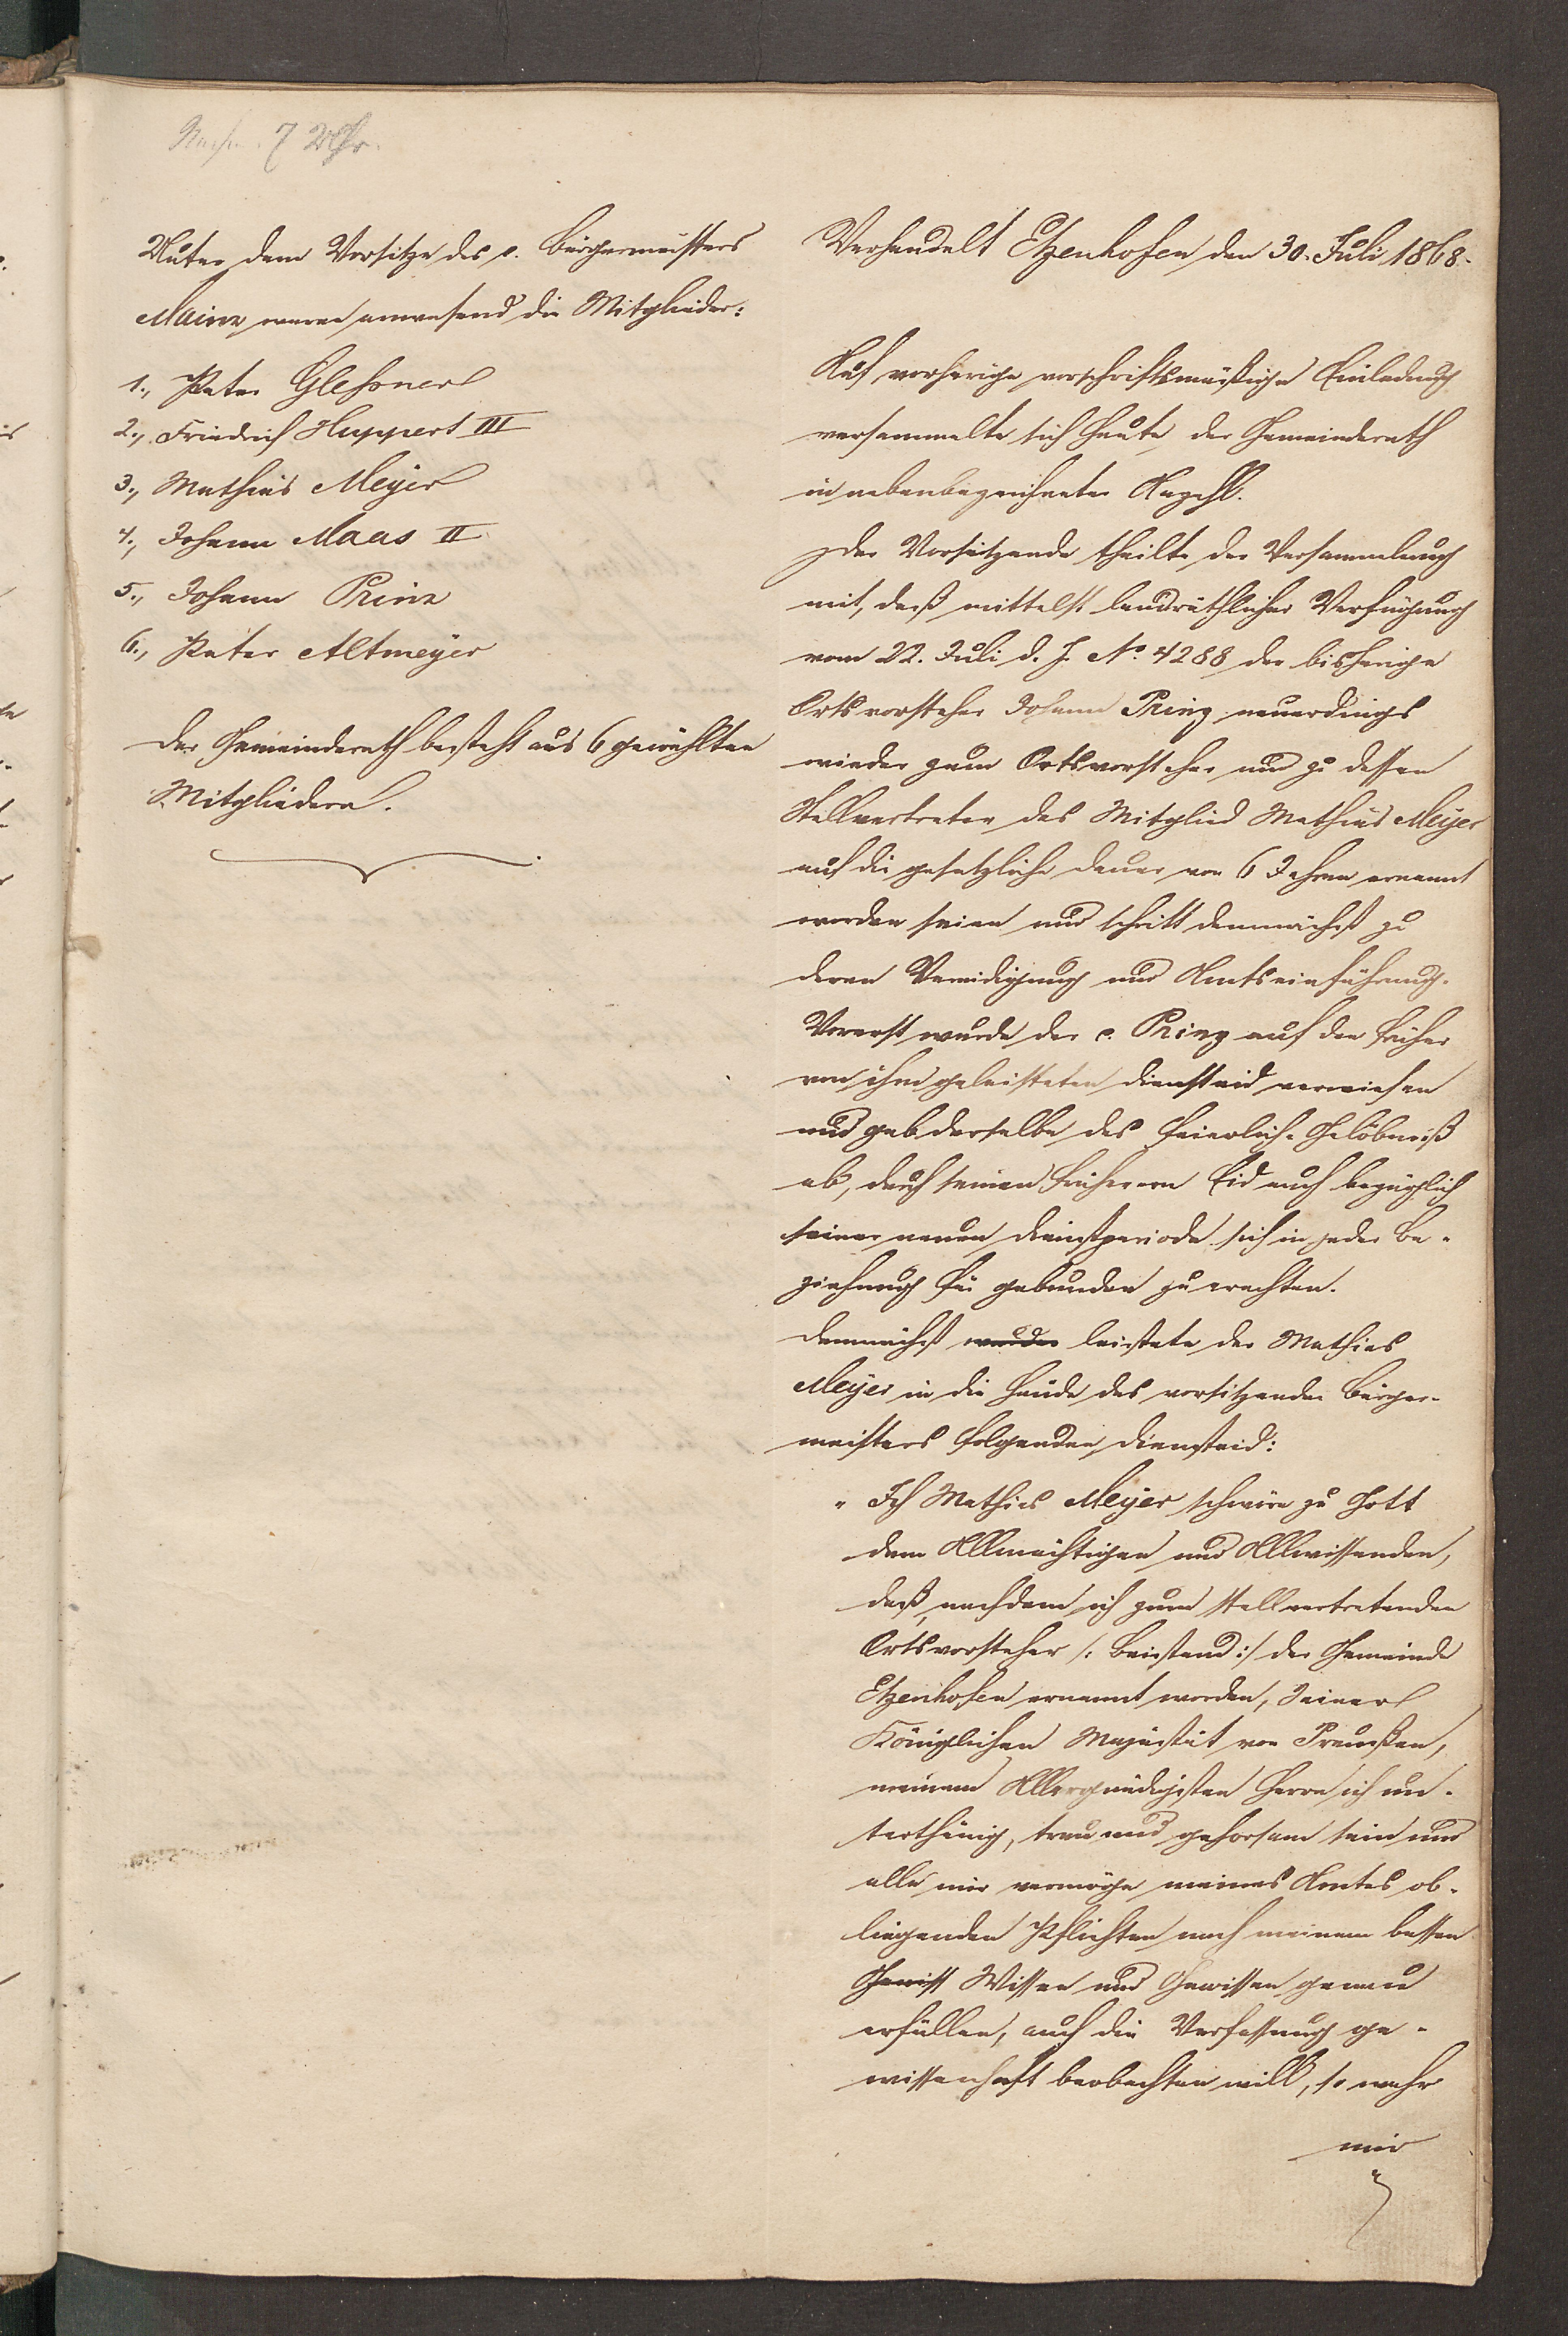 7 Uhr.
Unter dem Vorsitze des c. Bürgermeisters
Mainz waren anwesend die Mitglieder:
1., Peter Glessner
2., Friedrich Huppert III
3., Mathias Meyer
4., Johann Maas II
5., Johann Prinz
6., Peter Altmeyer
Der Gemeinderath besteht aus 6 gewählten
Mitgliedern.
Verhandelt Etzenhofen den 30. Juli 1868.
Auf vorherige vorschriftsmäßige Einladung
versammelte sich heute der Gemeinderath
in nebenbezeichneter Anzahl.
Der Vorsitzende theilte der Versammlung
mit, daß mittelst landräthlicher Verfügung
vom 22. Juli d. J. No. 4288 der bisherige
Ortsvorsteher Johann Prinz neuerdings
wieder zum Ortsvorsteher und zu dessen
Stellvertreter das Mitglied Mathias Meyer
auf die gesetzliche Dauer von 6 Jahren ernannt
worden seien und schritt demnächst zu
deren Vereidigung und Amtseinführung.
Vorerst wurde der c. Prinz auf den früher
von ihm geleisteten Diensteid verwiesen
und gab derselbe das feierliche Gelöbniß
ab, durch seinen früheren Eid auch bezüglich
seiner neuen Dienstperiode sich in jeder Be-
ziehung für gebunden zu erachten.
Demnächst wurde leistete der Mathias
Meyer in die Hände des vorsitzenden Bürger-
meisters folgenden Diensteid:
„ Ich Mathias Meyer schwöre zu Gott
dem Allmächtigen und Allwissenden,
daß, nachdem ich zum stellvertretenden
Ortsvorsteher /: Beistand :/ der Gemeinde
Etzenhofen ernannt worden, Seiner
Königlichen Majestät von Preußen,
meinem Allergnädigsten Herrn ich un-
terthänig, treu und gehorsam sein und
alle mir vermöge meines Amtes ob-
liegenden Pflichten nach meinem besten
Gewiss Wissen und Gewissen genau
erfüllen, auch die Verfassung ge-
wissenhaft beobachten will, so wahr
mir